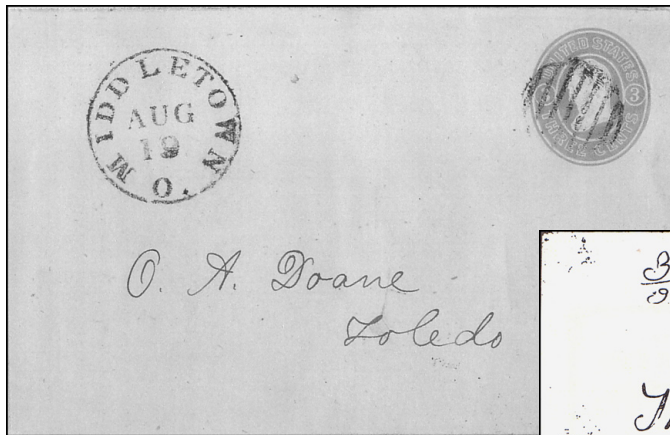 MIDDLETOWN O.
AUG
19
UNITED STATES
THREE CENTS
3 3
O. A. Doane
Toledo